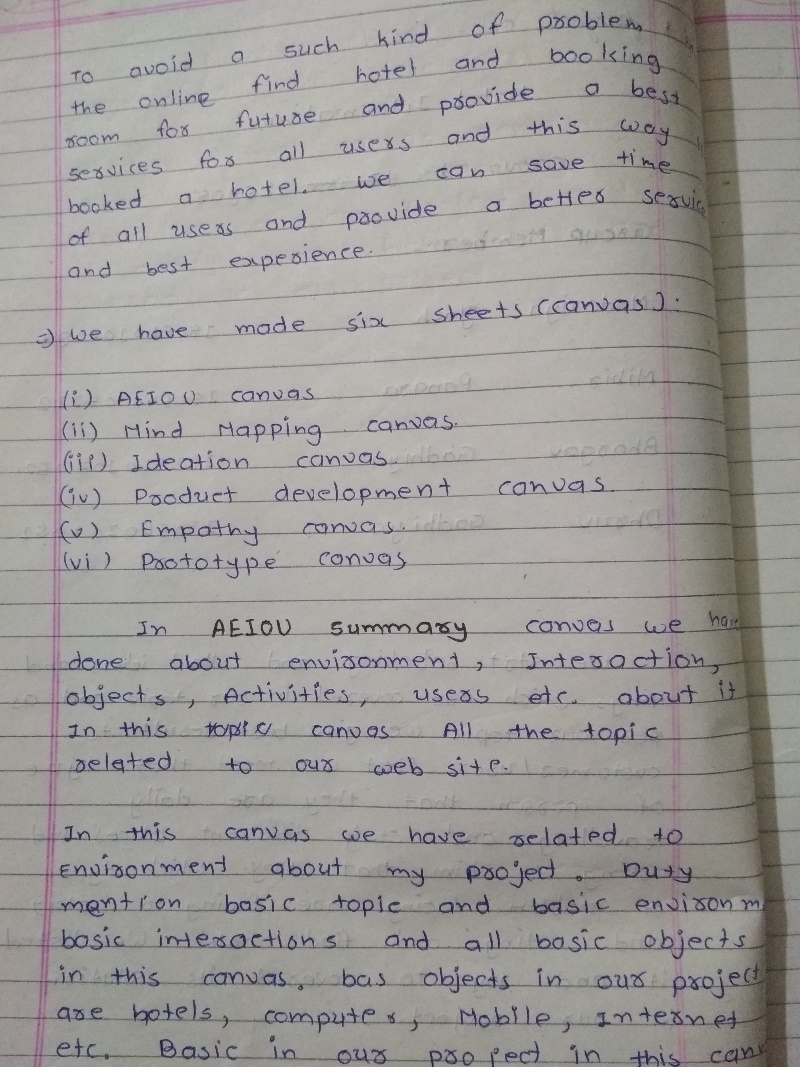 To avoid a such kind of problem in
the online find hotel and booking
room for future and provide a best
services for all users and this way
booked a hotel. we can save time
of all users and provide a better servic
and best experience.
=) we have made six sheets (canvas):
(i) AEIOU canvas
(ii) Mind Mapping canvas.
(iii) Ideation canvas
(iv) Product development canvas
(v) Empathy canvas.
(vi) Prototype canvas
In AEIOU summary canvas we have
done about environment, Interaction,
objects, Activities, users etc. about it
In this topic canvas All the topic
related to our web site.
In this canvas we have related to
Environment about my project. Duty
mention basic topic and basic environm
basic interactions and all basic objects
in this canvas. bas objects in our project
are hotels, computer, Mobile, Internet
etc. Basic in our project in this canv